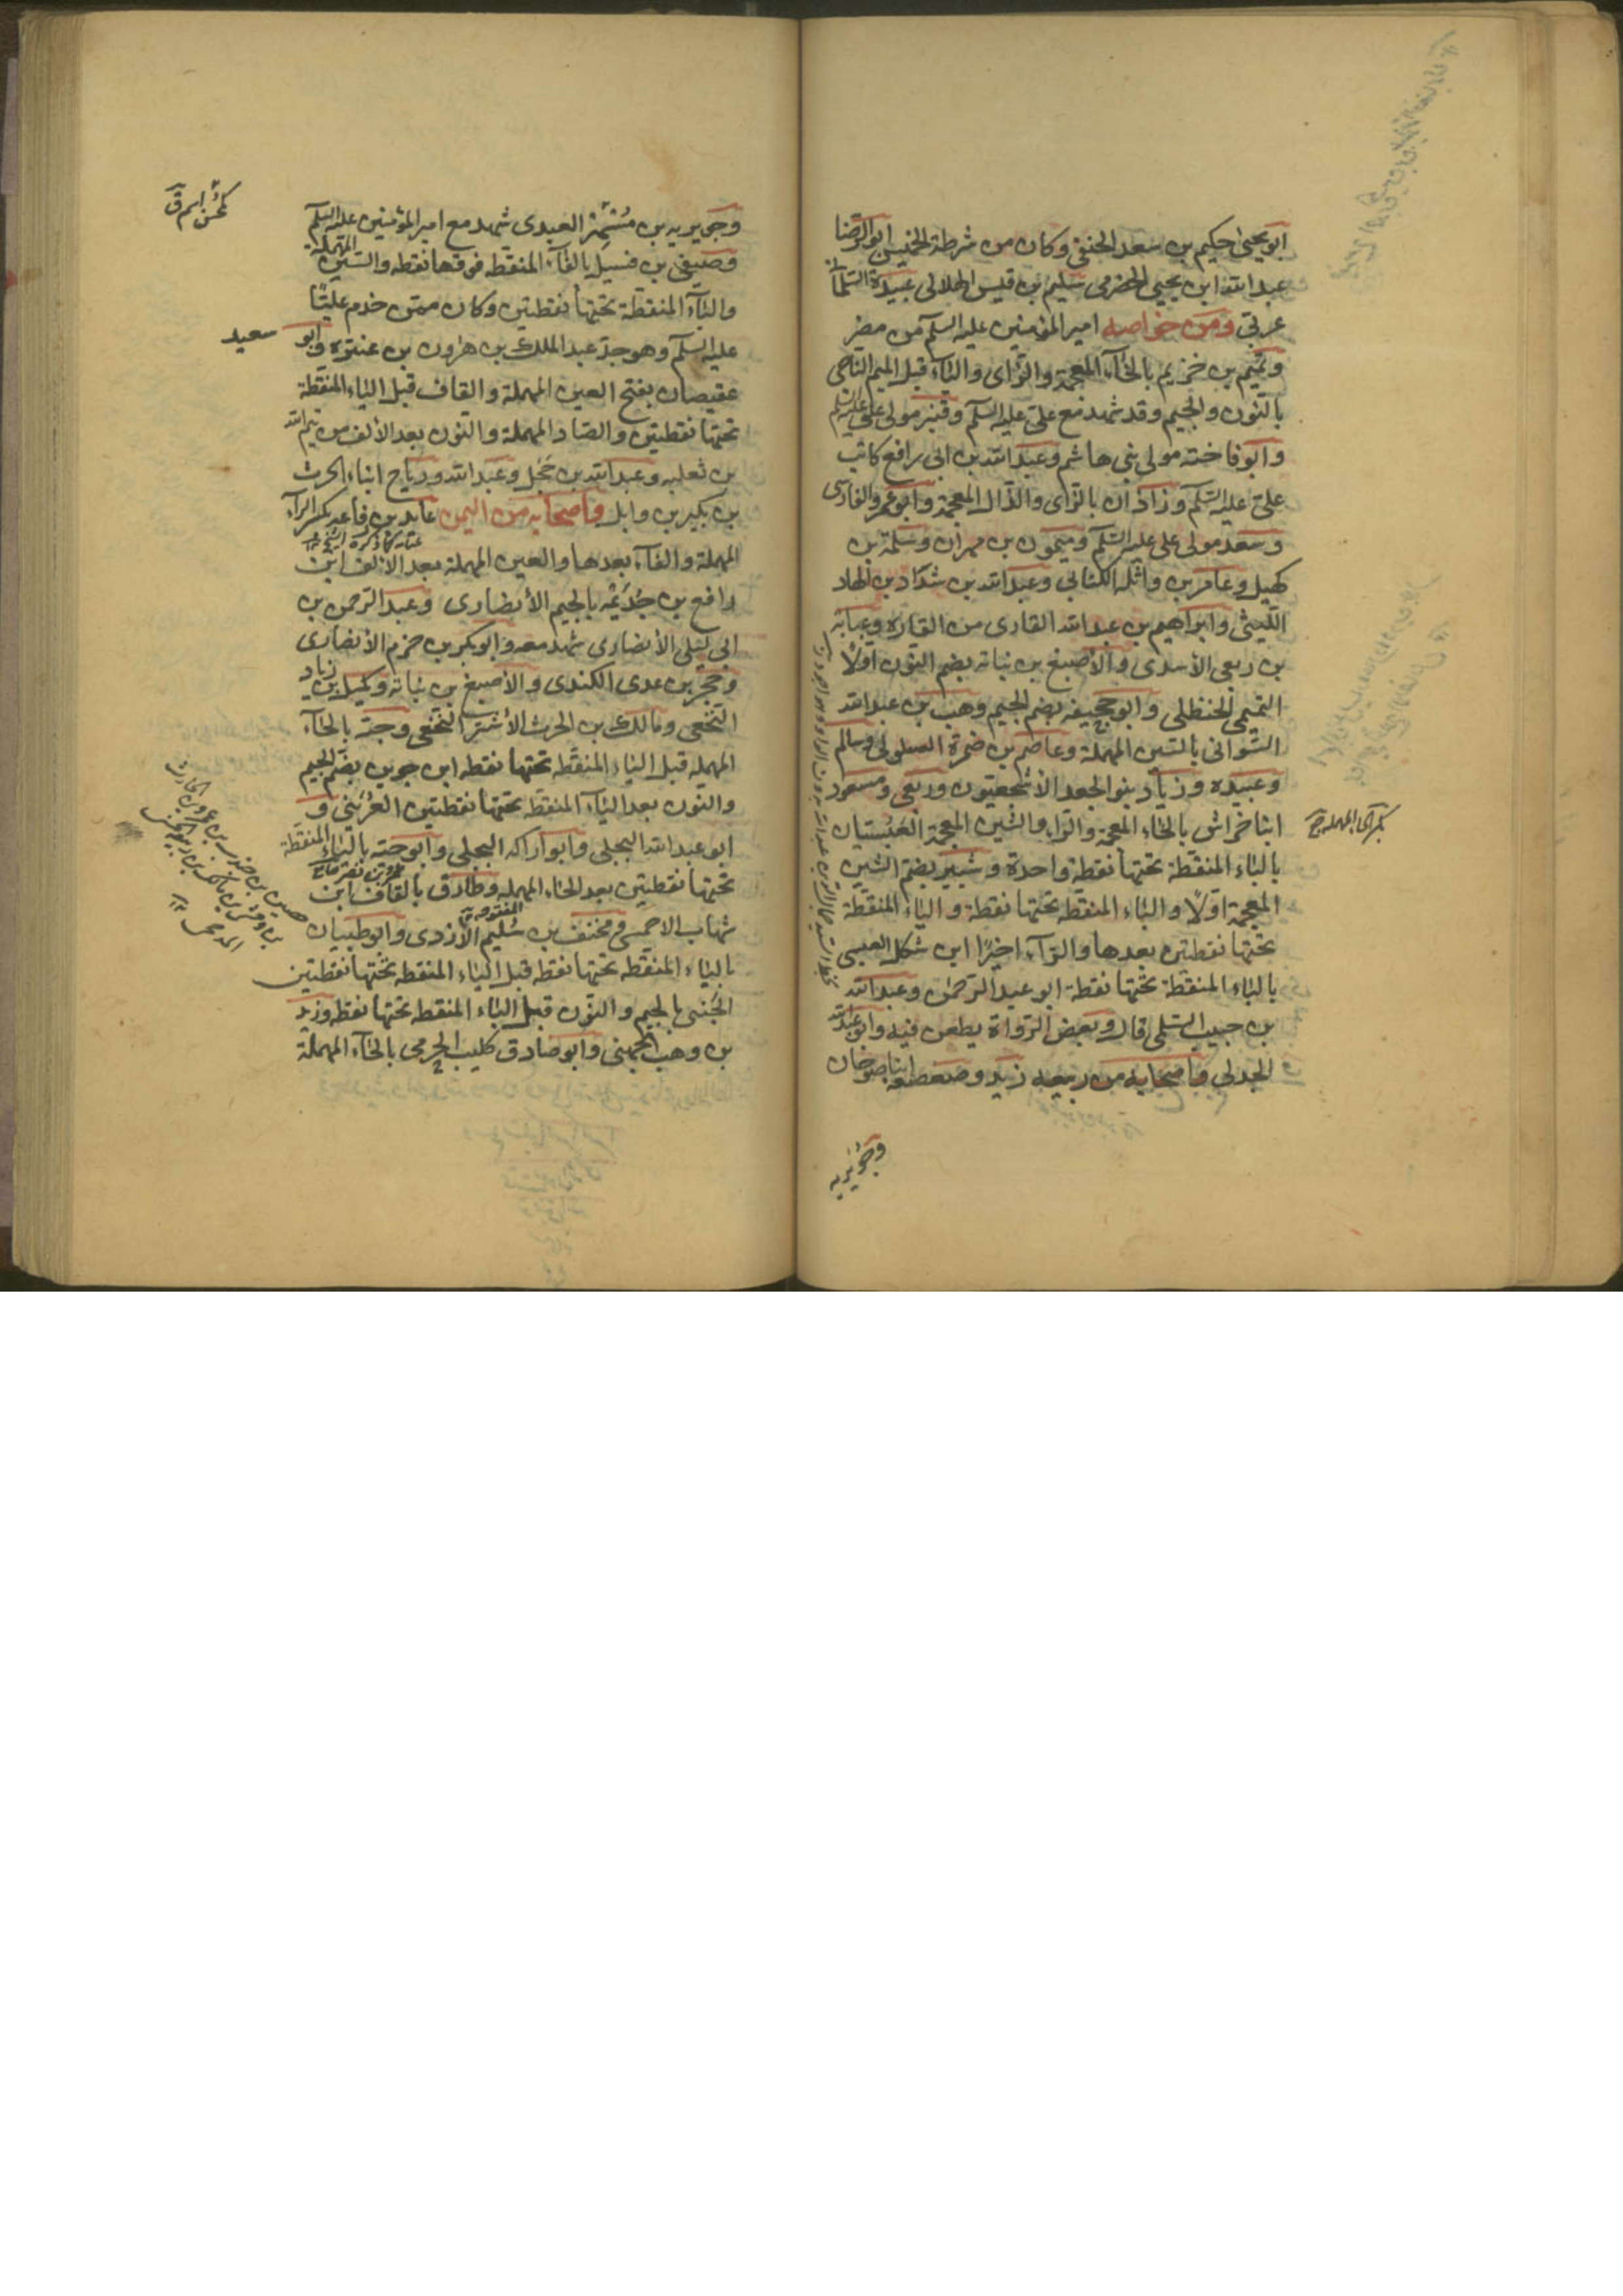 ابو يحيى حكيم بن سعد الحنفي وكان من شرطة الخميس ابو الرضا
عبد الله ابن يحيى الحضرمي سليم بن قيس الهلالي عبيدة السلماني
عربي ومن خواصه امير المؤمنين عليه السلم من مضر
وتميم بن خزيم بالخاء المعجمة والزاى والياء قبل الميم الناجي
بالنون والجيم وقد شهد مع علي عليه السلم وقنبر مولى علي عليه السلم
وابو فاخته مولى بني هاشم وعبد الله بن ابي رافع كاتب
علي عليه السلم وزاذان بالزاى والذال المعجمة وابو عمرو الفارسي
وسعد مولى علي عليه السلم وميمون بن مهران وسلمة بن
كهيل وعامر بن واثلة الكناني وعبد الله بن شداد بن الهاد
الليثي وابراهيم بن عبد الله القاري من القارة وعباية
بن ربعي الأسدي والأصبغ بن نباته بضم النون اولا
التميمي الحنظلي وابو جحيفه بضم الجيم وهب بن عبد الله
السوائي بالسين المهملة وعاصم بن ضمرة السلولي وسالم
وعبيده وزياد بنو الجعد الأشجعيون وربعي ومسعود
ابنا خراش بالخاء المعجمة والراء والشين المعجمة العبسيان
بكسر الحاء المهملة
بالباء المنقطة تحتها نقطة واحدة وشبير بضم الشين
المعجمة اولا والباء المنقطه تحتها نقطة والياء المنقطة
تحتها نقطتين بعدها والراء اخيرا ابن شكل العبسي
بالباء المنقطة تحتها نقطة ابو عبد الرحمن وعبد الله
بن حبيب السلمي قال وبعض الرواة يطعن فيه وابو عبد الله
الجدلي واصحابه من ربيعه زيد وصعصعه ابنا صوحان
وجويريه
وجويريه بن مسهر العبدي شهد مع امير المؤمنين عليه السلم
وصيفي بن فسيل بالفاء المنقطه فوقها نقطه والسين المهملة
والياء المنقطة تحتها نقطتين وكان ممن خدم عليا
عليه السلم وهو جد عبد الملك بن هرون بن عنتره وابو سعيد
عقيصان بفتح العين المهملة والقاف قبل الياء المنقطة
تحتها نقطتين والصاد المهملة والنون بعد الألف من تيم الله
بن ثعلبه وعبد الله بن حجل وعبد الله ورياح ابناء الحرث
بن بكير بن وايل واصحابه من اليمن عابد بن رفاعه بكسر الراء
المهملة والفاء بعدها والعين المهملة بعد الألف ابن
رافع بن جذيمه بالجيم الأنصاري وعبد الرحمن بن
ابي ليلى الأنصاري شهد معه وابو بكر بن حزم الأنصاري
وحجر بن عدي الكندي والأصبغ بن نباته وكميل بن زياد
النخعي ومالك بن الحرث الأشتر النخعي وحبة بالحاء
المهمله قبل الباء المنقطه تحتها نقطه ابن جوين بضم الجيم
والنون بعد الياء المنقطة تحتها نقطتين العرني و
ابو عبد الله البجلي وابو اراكه البجلي وابو حيه بالياء المنقطة
تحتها نقطتين بعد الحاء المهمله وطارق بالقاف ابن
شهاب الاحمسي ومخنف بن سليم الأزدي وابو ظبيان
بالباء المنقطه تحتها نقطه قبل الياء المنقطه تحتها نقطتين
الجنبي بالجيم والنون قبل الباء المنقطه تحتها نقطه وزيد
بن وهب الجهني وابو صادق كليب الجرمي بالحاء المهملة